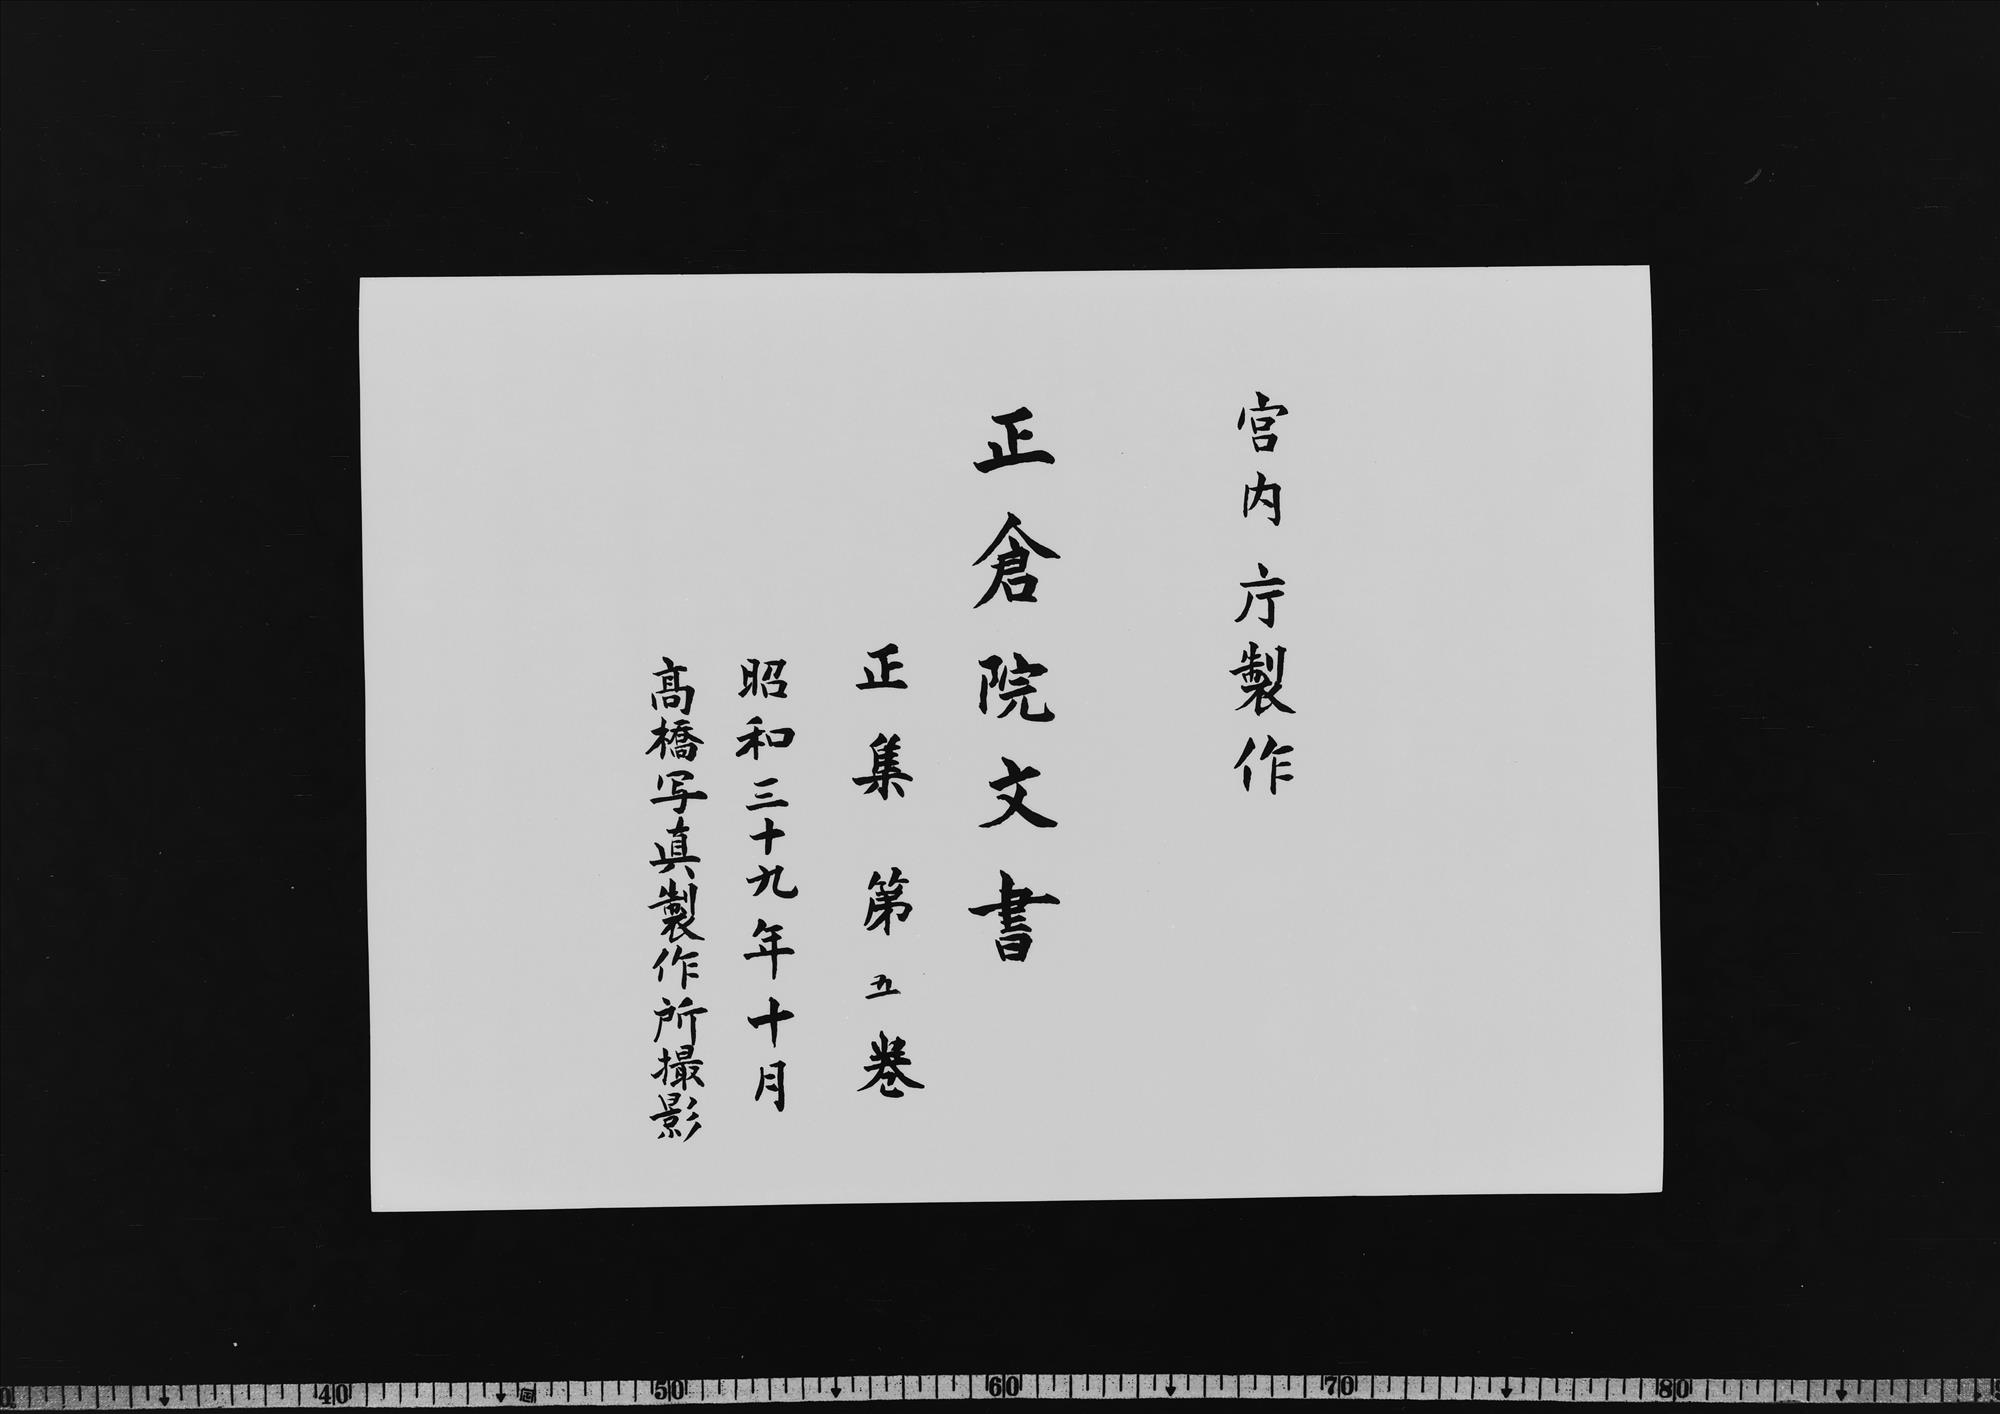 宮内庁製作
正倉院文書
正集 第五巻
昭和三十九年十月
髙橋写真製作所撮影
40 50 60 70 80